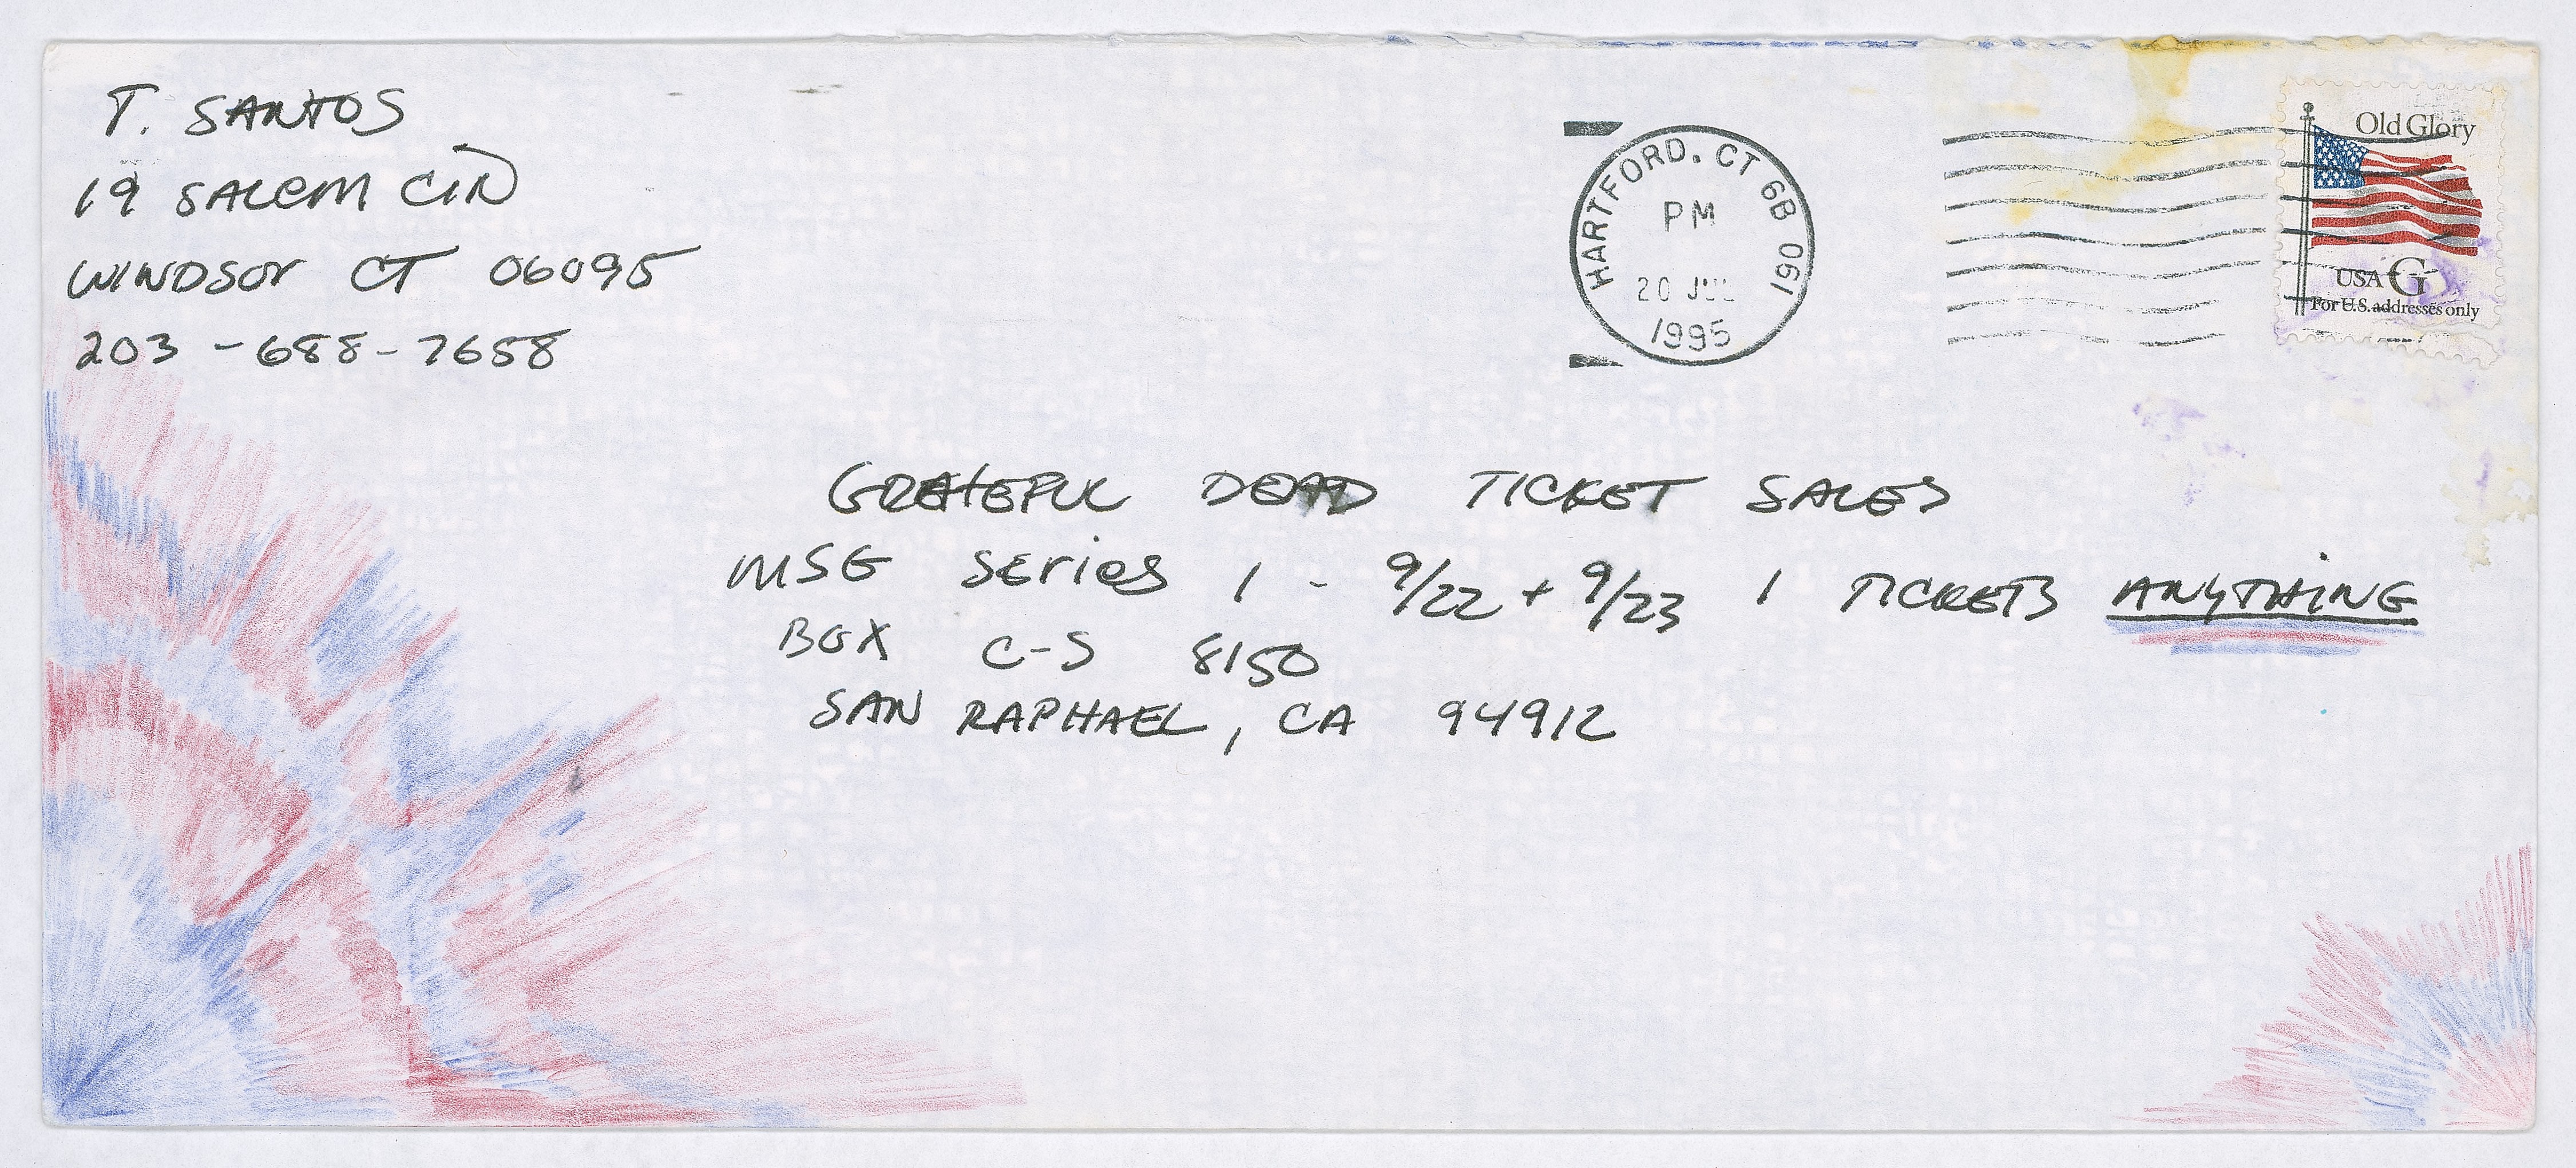 T. SANTOS
19 SALEM CIR
WINDSOR CT 06095
203-688-7658
HARTFORD, CT 6B 061
PM
20 JUL
1995
Old Glory
USA G
For U.S. addresses only
GRATEFUL DEAD TICKET SALES
MSG SERIES 1 - 9/22 + 9/23 1 TICKETS ANYTHING
BOX C-S 8150
SAN RAPHAEL, CA 94912